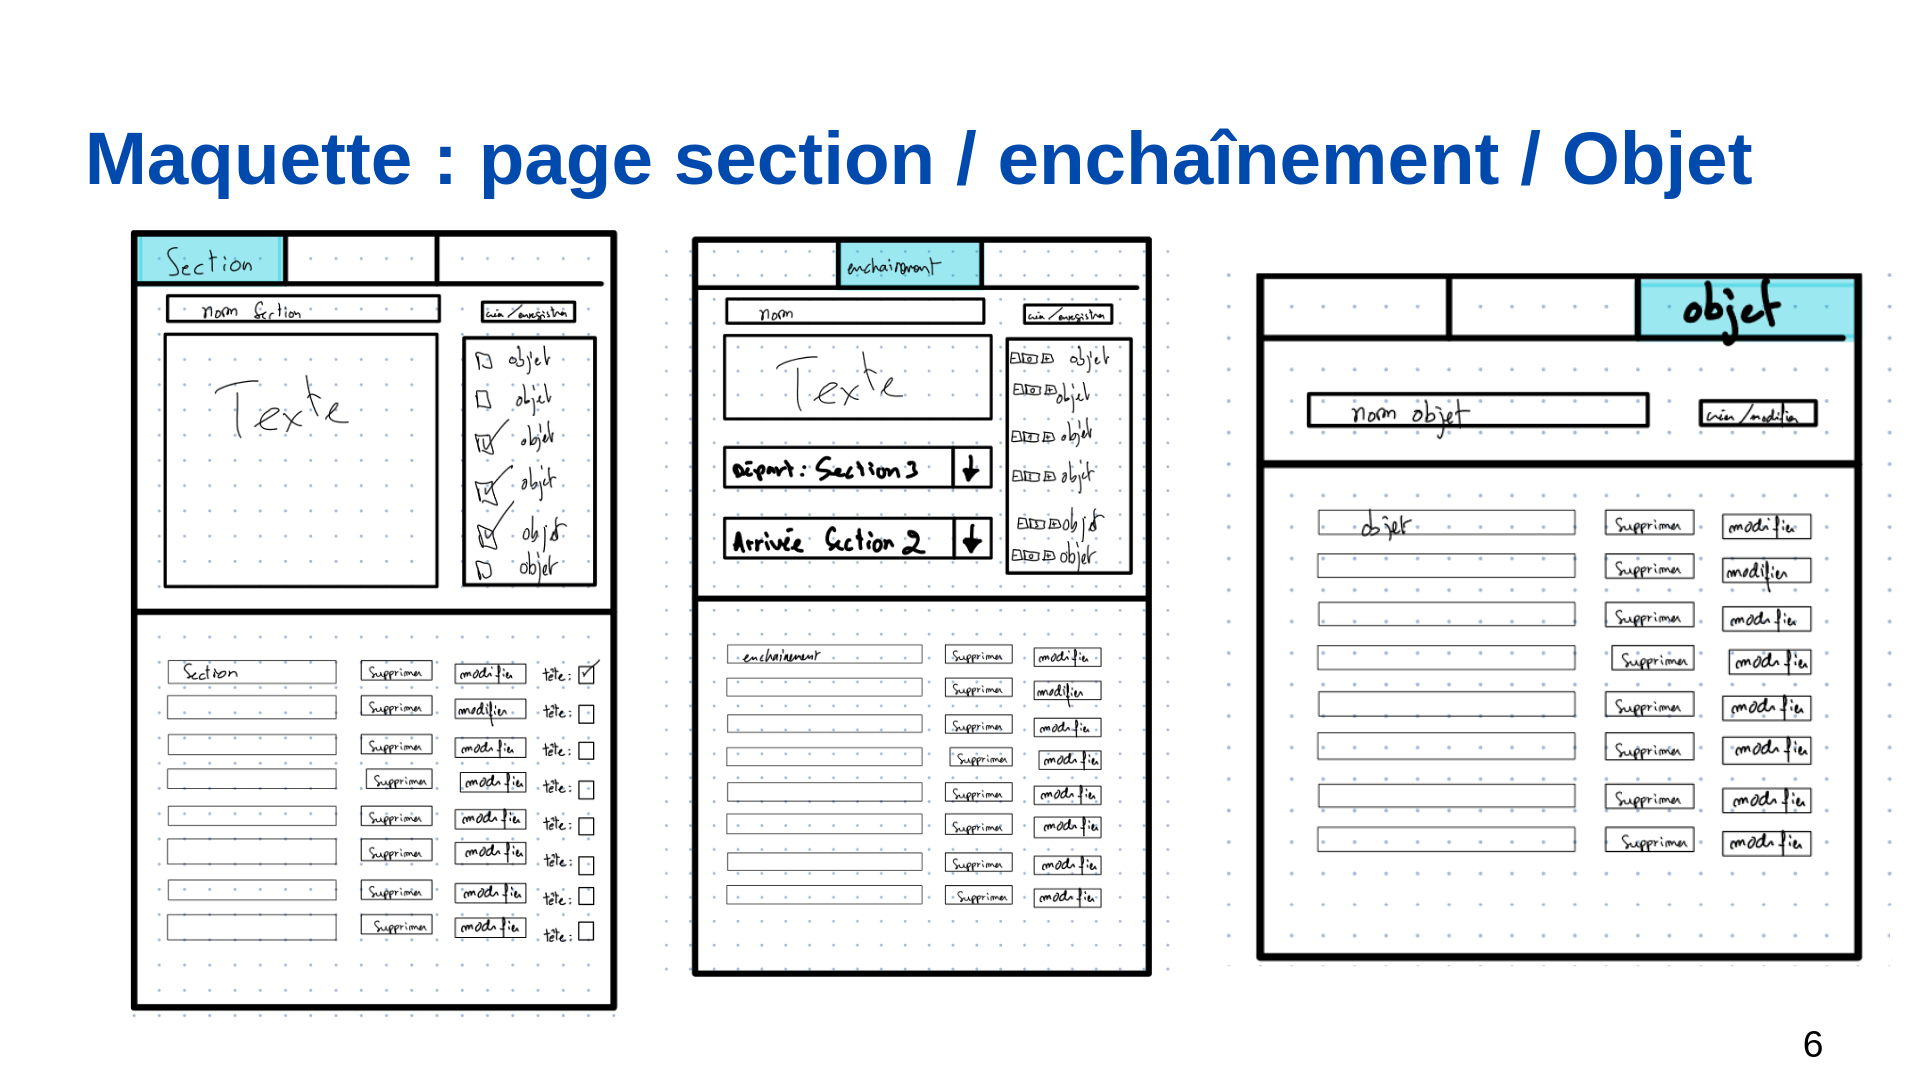 Maquette : page section / enchaînement / Objet
Section
nom Section
créer/enregistrer
Texte
objet
objet
objet
objet
objet
objet
Section Supprimer modifier tête :
Supprimer modifier tête :
Supprimer modifier tête :
Supprimer modifier tête :
Supprimer modifier tête :
Supprimer modifier tête :
Supprimer modifier tête :
Supprimer modifier tête :
enchainement
nom
créer/enregistrer
Texte
Départ : Section 3
Arrivée Section 2
objet
objet
objet
objet
objet
objet
enchainement Supprimer modifier
Supprimer modifier
Supprimer modifier
Supprimer modifier
Supprimer modifier
Supprimer modifier
Supprimer modifier
Supprimer modifier
objet
nom objet
créer/modifier
objet Supprimer modifier
Supprimer modifier
Supprimer modifier
Supprimer modifier
Supprimer modifier
Supprimer modifier
Supprimer modifier
Supprimer modifier
6